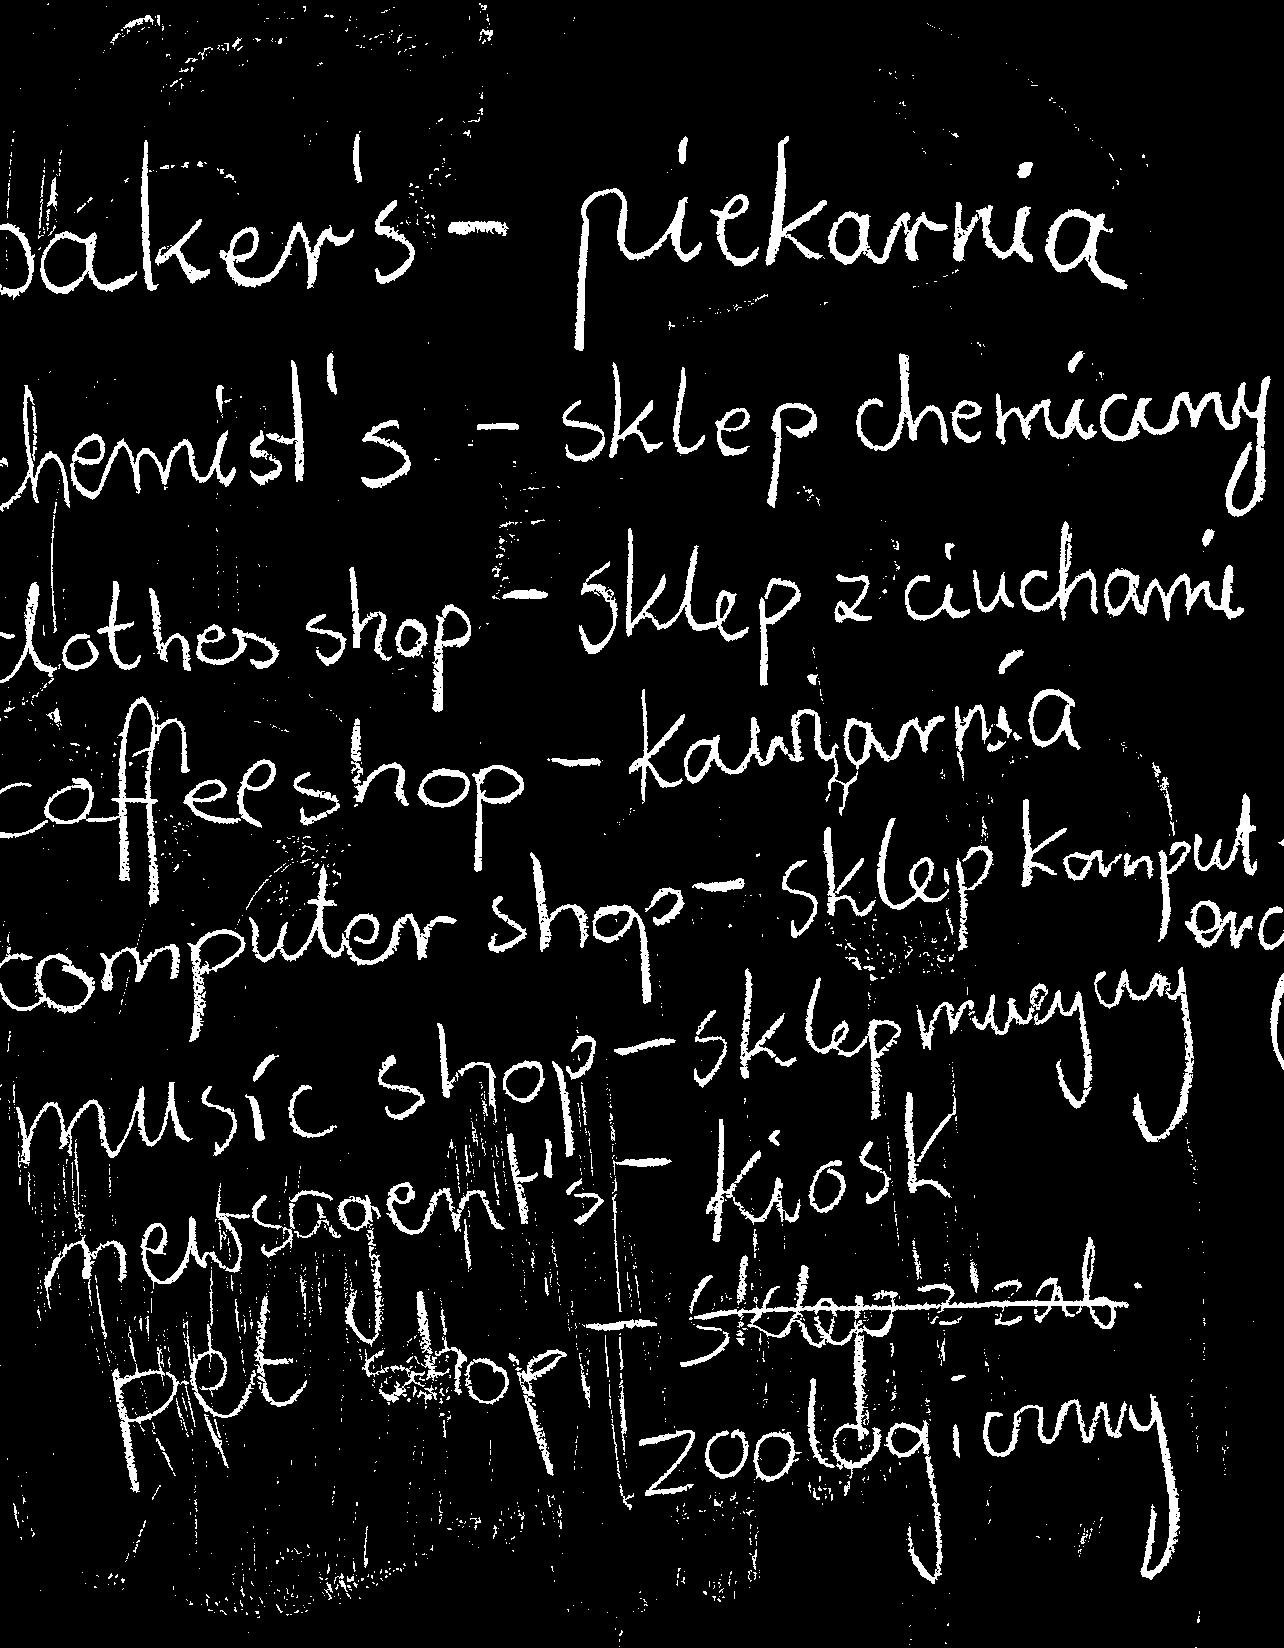 baker's - piekarnia
chemist's - sklep chemiczny
clothes shop - sklep z ciuchami
coffee shop - kawiarnia
computer shop - sklep komput-
music shop - sklep muzyczny
newsagent's - kiosk
pet shop - sklep z zab.
zoologiczny